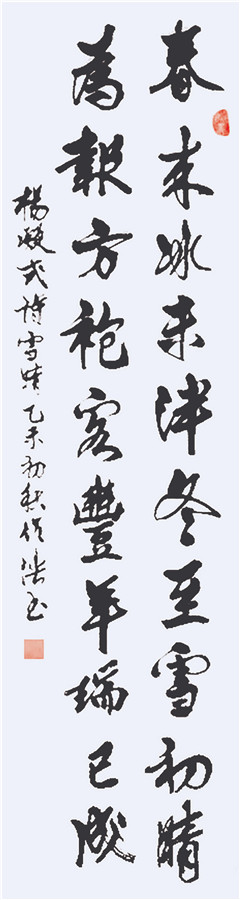 春来冰未泮冬至雪初晴
為報方袍客豐年瑞已成
楊凝式詩雪晴乙未初秋作